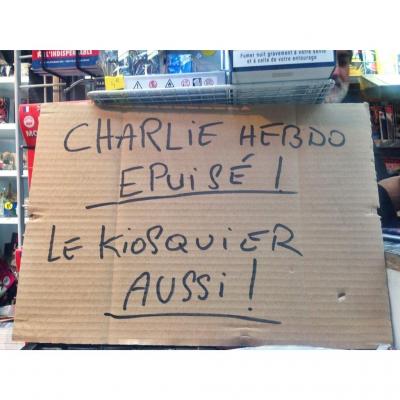 L'INDISPENSABLE
Fumer nuit gravement à votre santé
et à celle de votre entourage
CHARLIE HEBDO
EPUISÉ !
LE KIOSQUIER
AUSSI !